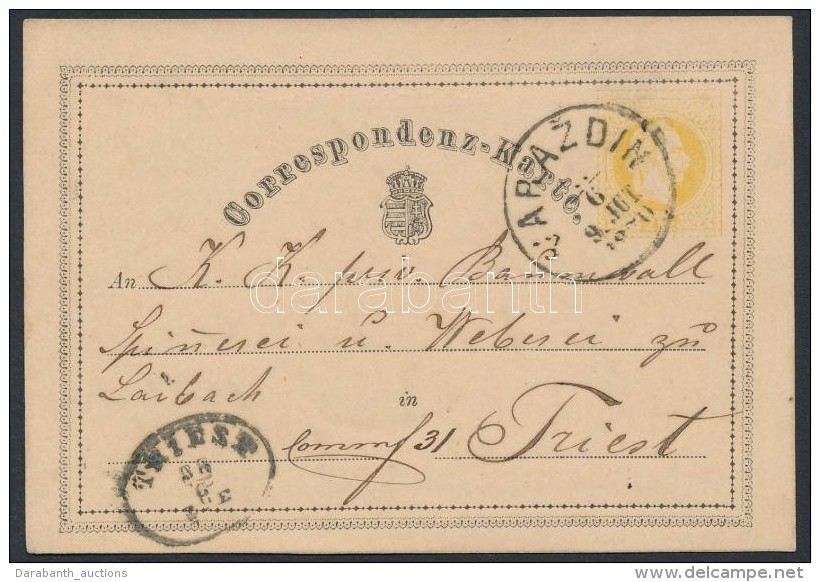 Correspondenz-Karte.
VARAŽDIN
An K. K. priv. Baumwoll
darabanth
Spinnerei u. Weberei zu
Laibach in
Triest
TRIEST
Darabanth_auctions
delcampe.net